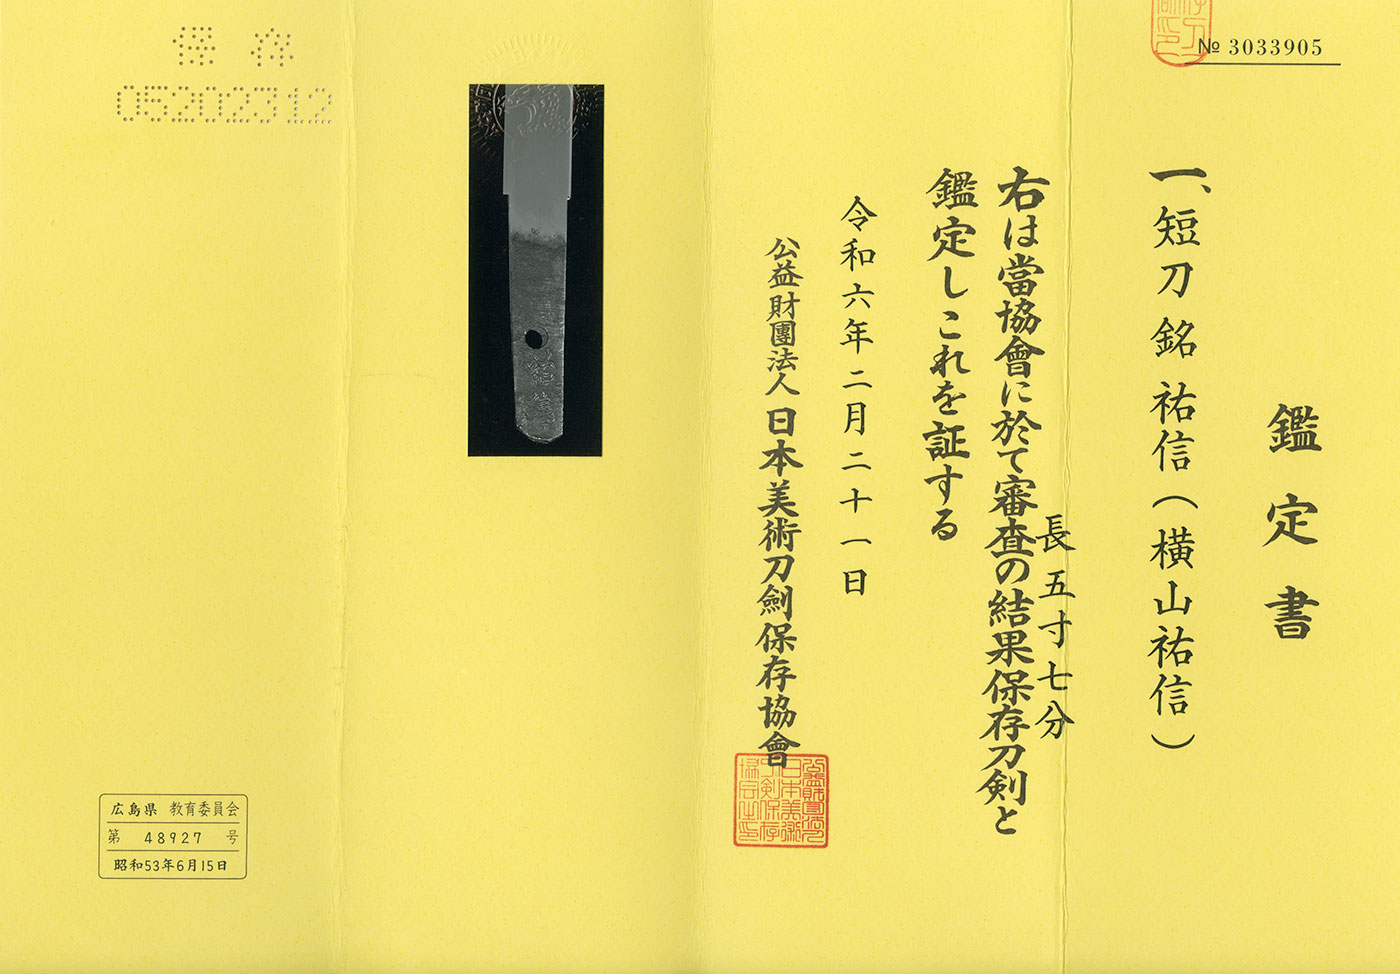 № 3033905
鑑定書
一、短刀 銘 祐信（横山祐信）
長 五寸七分
右は當協會に於て審査の結果保存刀剣と
鑑定しこれを証する
令和六年二月二十一日
公益財團法人 日本美術刀劍保存協會
保存
05202312
広島県 教育委員会
第 48927 号
昭和53年6月15日